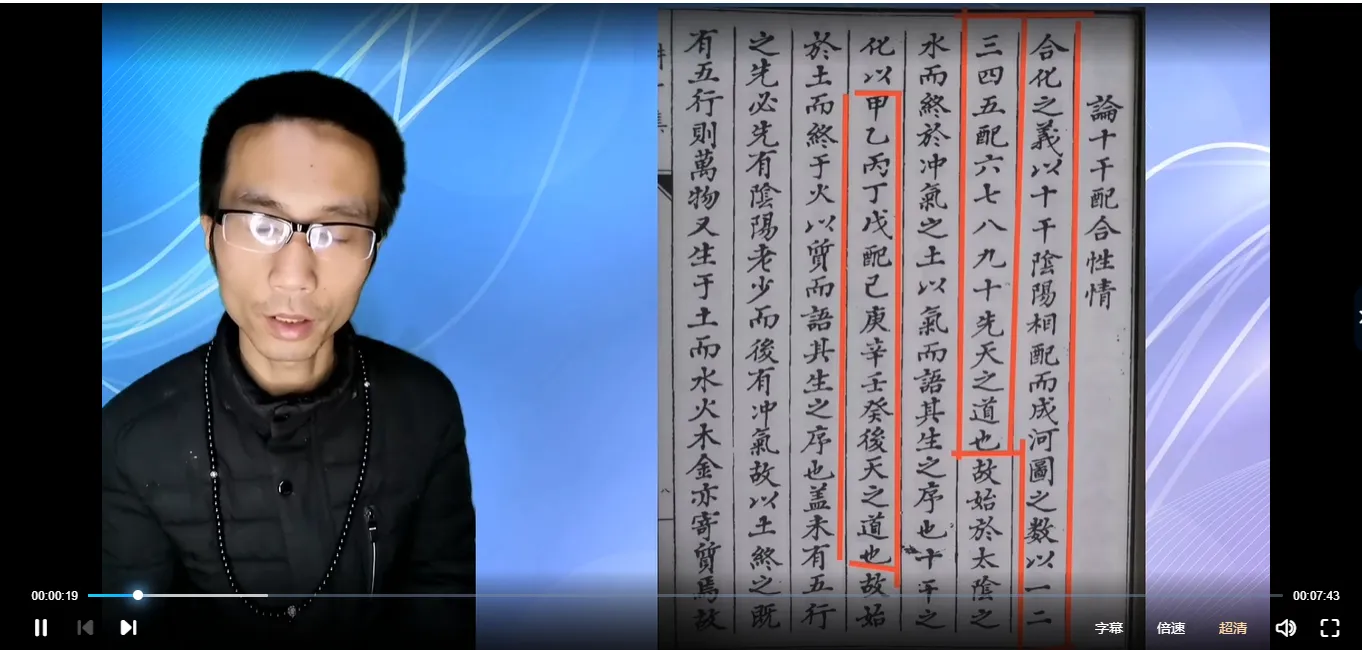 論十干配合性情
合化之義以十干陰陽相配而成河圖之数以一二
三四五配六七八九十先天之道也故始於太陰之
水而終於冲氣之土以氣而語其生之序也十干之
化以甲乙丙丁戊配己庚辛壬癸後天之道也故始
於土而終于火以質而語其生之序也盖未有五行
之先必先有陰陽老少而後有冲氣故以土終之既
有五行則萬物又生于土而水火木金亦寄質焉故
00:00:19
00:07:43
字幕
倍速
超清